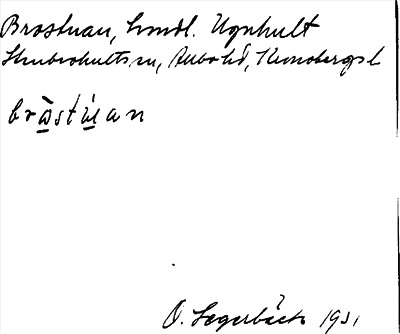 Brostuan, hmdl. Ugnhult
Stenbrohults sn, Allbo hd, Kronobergs l
bràstu̇an
O. Sagerbäck 1931